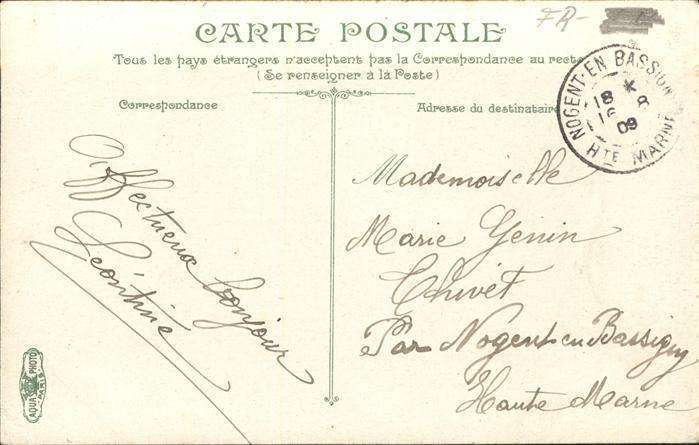 FR-
CARTE POSTALE
Tous les pays étrangers n'acceptent pas la Correspondance au recto
(Se renseigner à la Poste)
Correspondance
Adresse du destinataire
NOGENT-EN-BASSIGNY
18 K
16 8
09
HTE MARNE
Affectueux bonjour
Léontine
Mademoiselle
Marie Genin
Thivet
Par Nogent en Bassigny
Haute Marne
AQUA PHOTO
PARIS